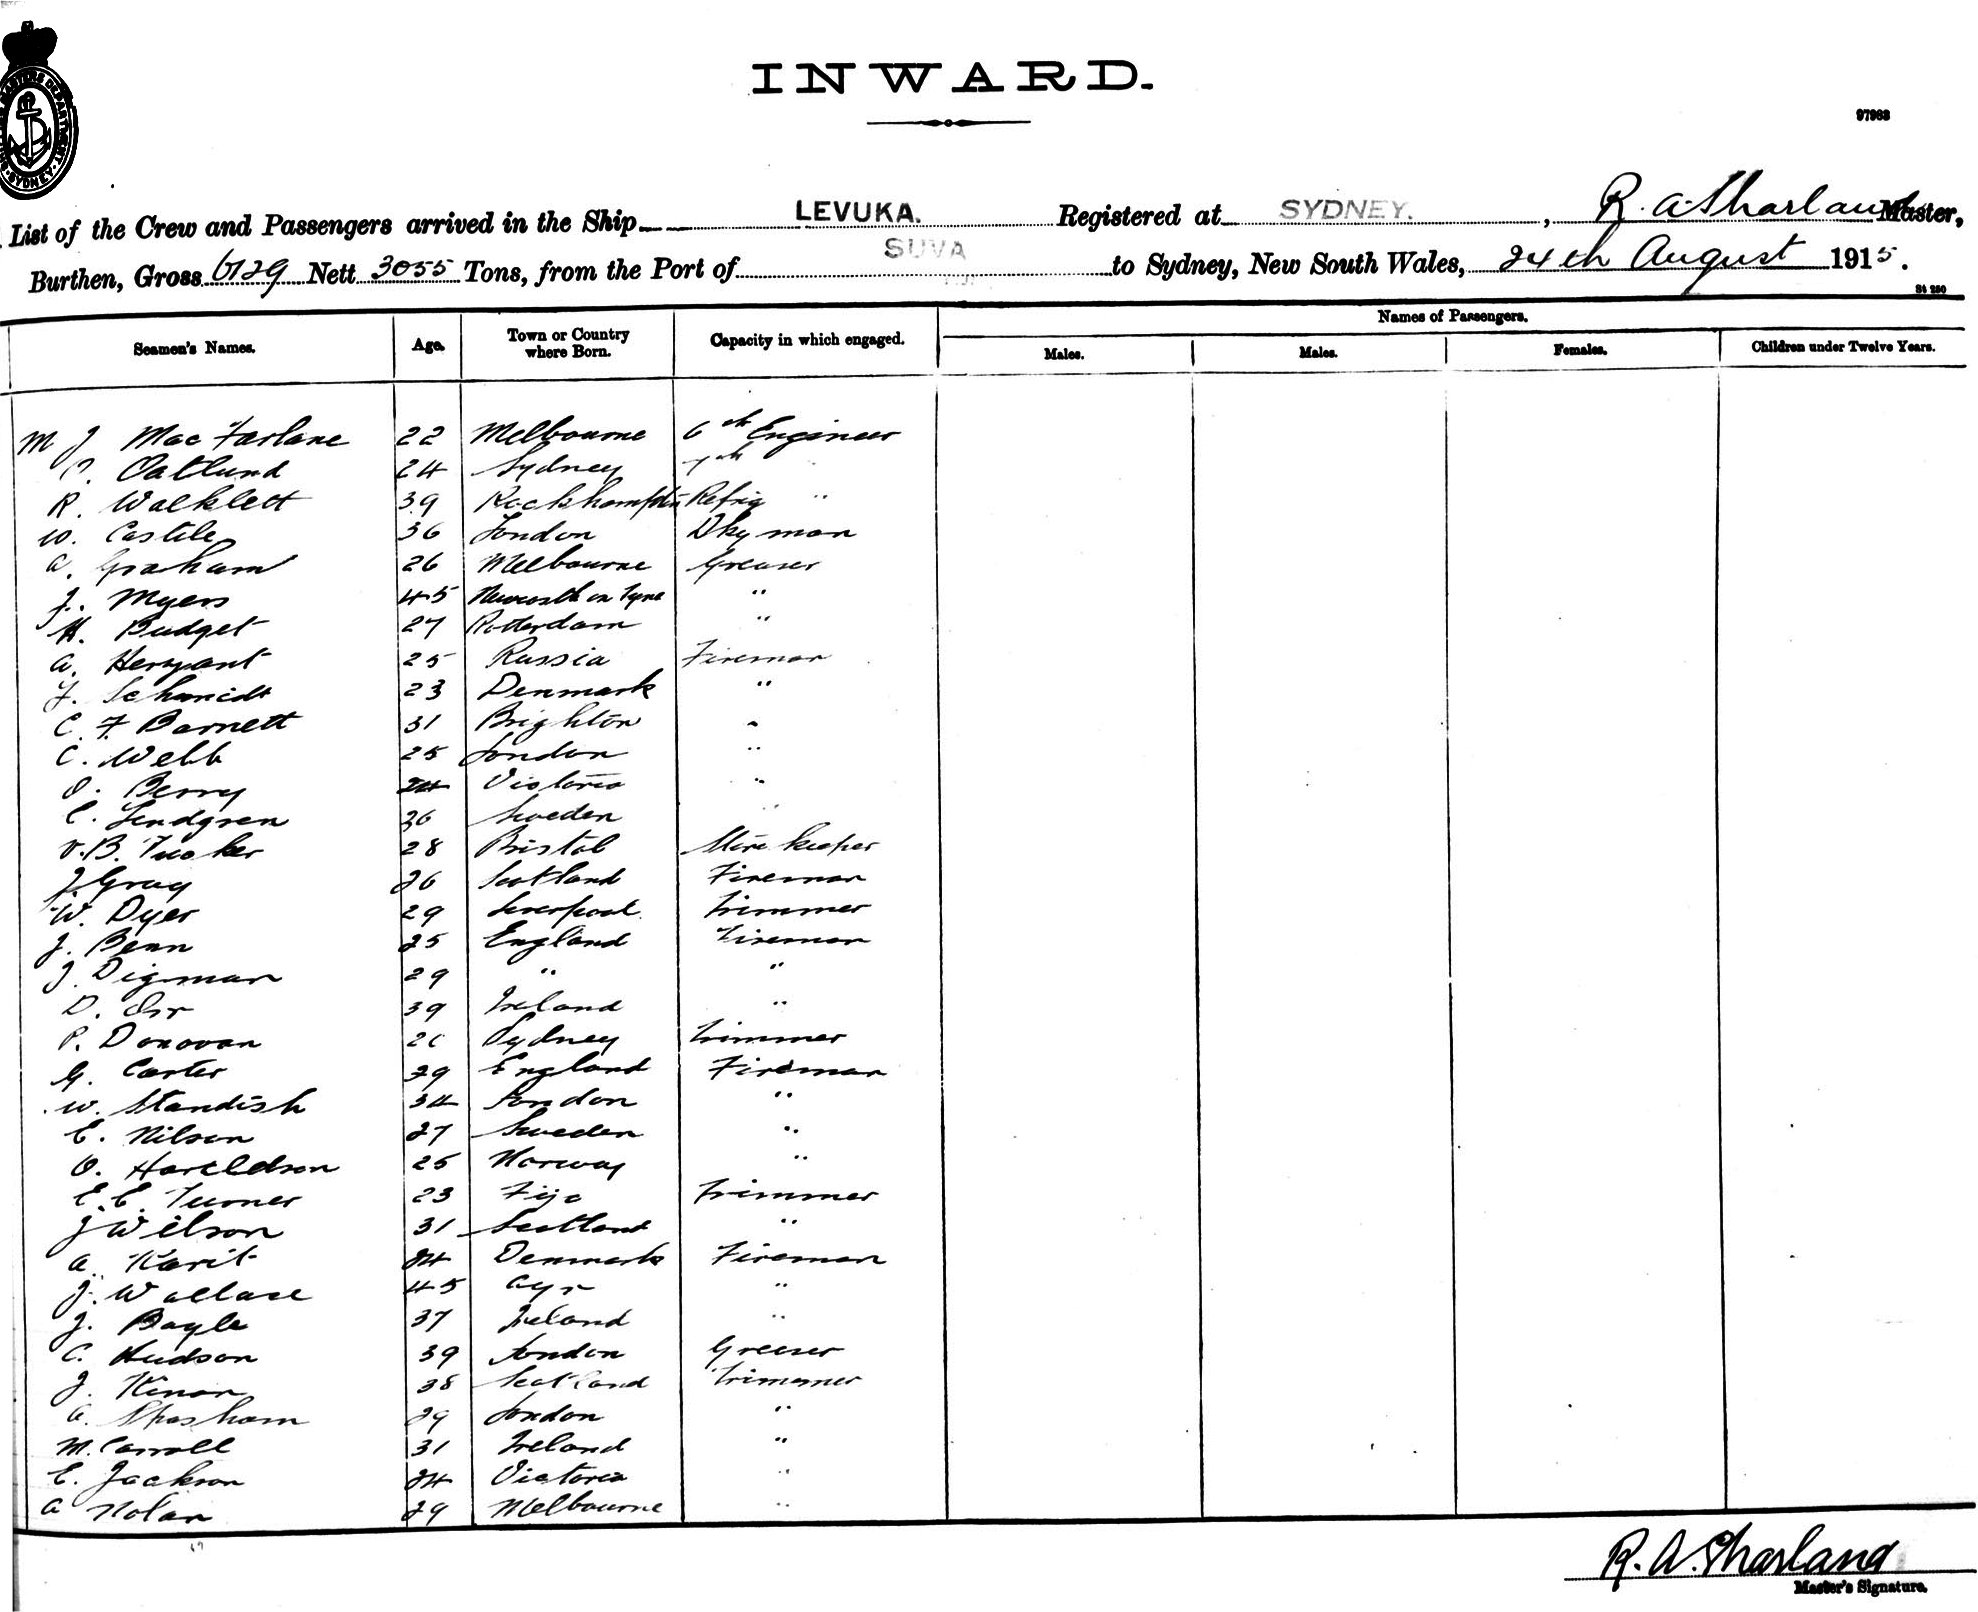 INWARD.
97963
SYDNEY
List of the Crew and Passengers arrived in the Ship LEVUKA. Registered at SYDNEY. , R. A. Sharland Master,
Burthen, Gross 6129 Nett 3055 Tons, from the Port of SUVA to Sydney, New South Wales, 24th August 1915.
St 250
Seamen's Names. Age. Town or Country where Born. Capacity in which engaged. Names of Passengers.
Males. Males. Females. Children under Twelve Years.
M J Mac Farlane 22 Melbourne 6th Engineer
Oatlund 24 Sydney 7th "
R. Walklett 39 Rockhampton Refrig "
W. Castile 36 London Dky man
A. Graham 26 Melbourne Greaser
J. Myers 45 Newcastle on Tyne "
H. Budget 27 Rotterdam "
A. Herpant 25 Russia Fireman
F. Schmidt 23 Denmark "
C. F. Barnett 31 Brighton "
C. Webb 25 London "
O. Berry 24 Victoria "
C. Lindgren 36 Sweden "
V. B. Tucker 28 Bristol Store keeper
J. Gray 26 Scotland Fireman
W. Dyer 29 Liverpool Trimmer
J. Benn 25 England Fireman
J. Digman 29 " "
D. Orr 39 Ireland "
P. Donovan Sydney Trimmer
G. Carter 39 England Fireman
W. Standish 34 London "
E. Nilson 27 Sweden "
O. Hareldson 25 Norway "
E. E. Turner 23 Fiji Trimmer
J Wilson 31 Scotland "
A. Karit 24 Denmark Fireman
J. Wallace 45 Ayr "
J. Boyle 37 Ireland "
C. Hudson 39 London Greaser
J. Kinon 38 Scotland Trimmer
A. Sparham 29 London "
M. Carroll 31 Ireland "
E. Jackson 24 Victoria "
A Nolan 29 Melbourne "
R. A. Sharland
Master's Signature.